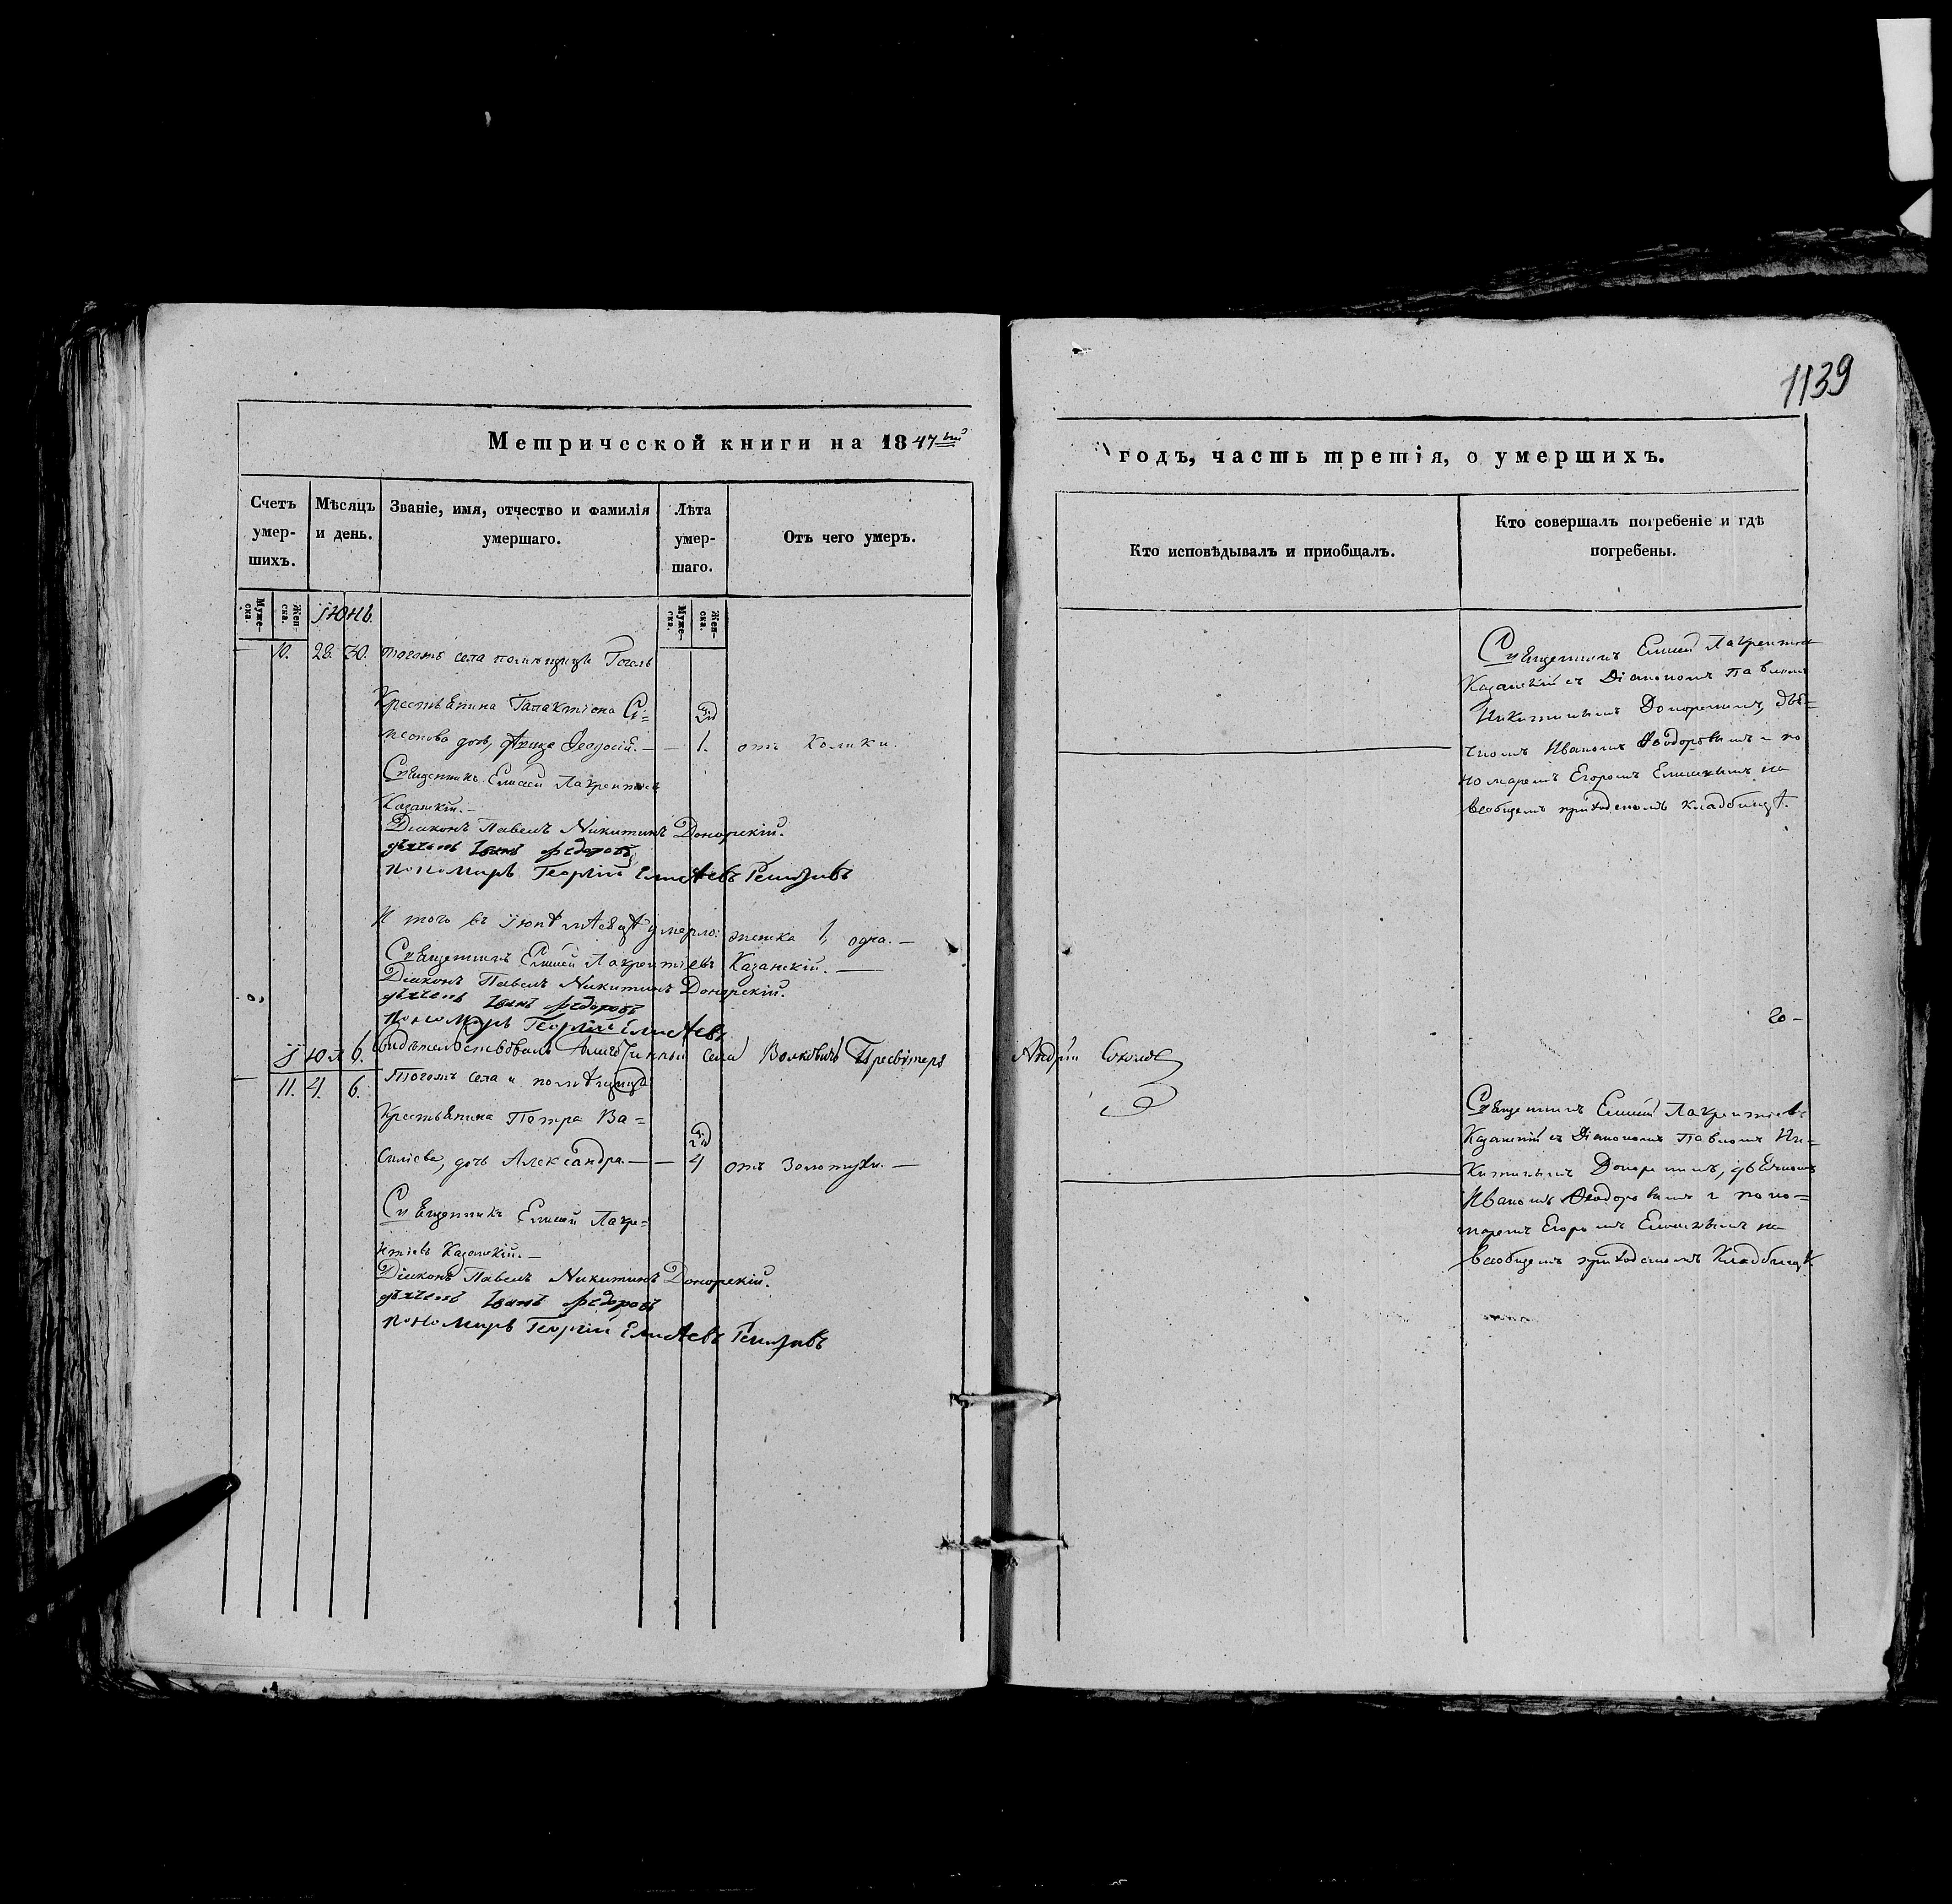 1139
Метрической книги на 1847ый
годъ, часть третія, о умершихъ.
Счетъ умер-шихъ.
Мѣсяцъ и день.
Званіе, имя, отчество и фамилія умершаго.
Лѣта умер-шаго.
Отъ чего умеръ.
Кто исповѣдывалъ и приобщалъ.
Кто совершалъ погребеніе и гдѣ погребены.
Муже-ска.
Жен-ска.
Іюнь.
Муже-ска.
Жен-ска.
10. 28. 30. Тогожъ села помѣщицы
Крестьянина Галактіона Си=
дочь, Феодосія. — — 1. отъ Колики.
Священникъ Елисей Лаврентіевъ
Казанскій.—
Діаконъ Павелъ Никитинъ Донорскій.
дьячекъ Іванъ Федоровъ
пономарь Георгій Елисѣевъ
Священникъ Елисей Лаврентіевъ
Казанскій съ Діакономъ Павломъ
Никитинымъ Донорскимъ, дья=
чкомъ Иваномъ Ѳеодоровымъ и по
номаремъ Егоромъ Елисѣевымъ на
всеобщемъ приходскомъ кладбищѣ.
И того въ Іюнѣ мѣсяцѣ умерло: женска 1, одна.—
Священникъ Елисей Лаврентіевъ Казанскій.—
Діаконъ Павелъ Никитинъ Донорскій.
дьячекъ Іванъ Федоровъ
пономарь Георгій Елисѣевъ
20-
Свидѣтельствовалъ села Волковичъ Пресвитеръ Андрей Соколов
Іюл
11. 4. 6. Тогожъ села и помѣщицы
Крестьянина Петра Ва=
силіева, дочь Александра.— — 4 отъ Золотухи.—
Священникъ Елисей Лавре=
нтіевъ Казанскій.—
Діаконъ Павелъ Никитинъ Донорскій.
дьячекъ Іванъ Федоровъ
пономарь Георгій Елисѣевъ
Священникъ Елисей Лаврентіевъ
Казанскій съ Діакономъ Павломъ Ни=
китинымъ Донорскимъ, дьячкомъ
Иваномъ Ѳеодоровымъ и поно=
маремъ Егоромъ Елисѣевымъ на
всеобщемъ приходскомъ Кладбищѣ